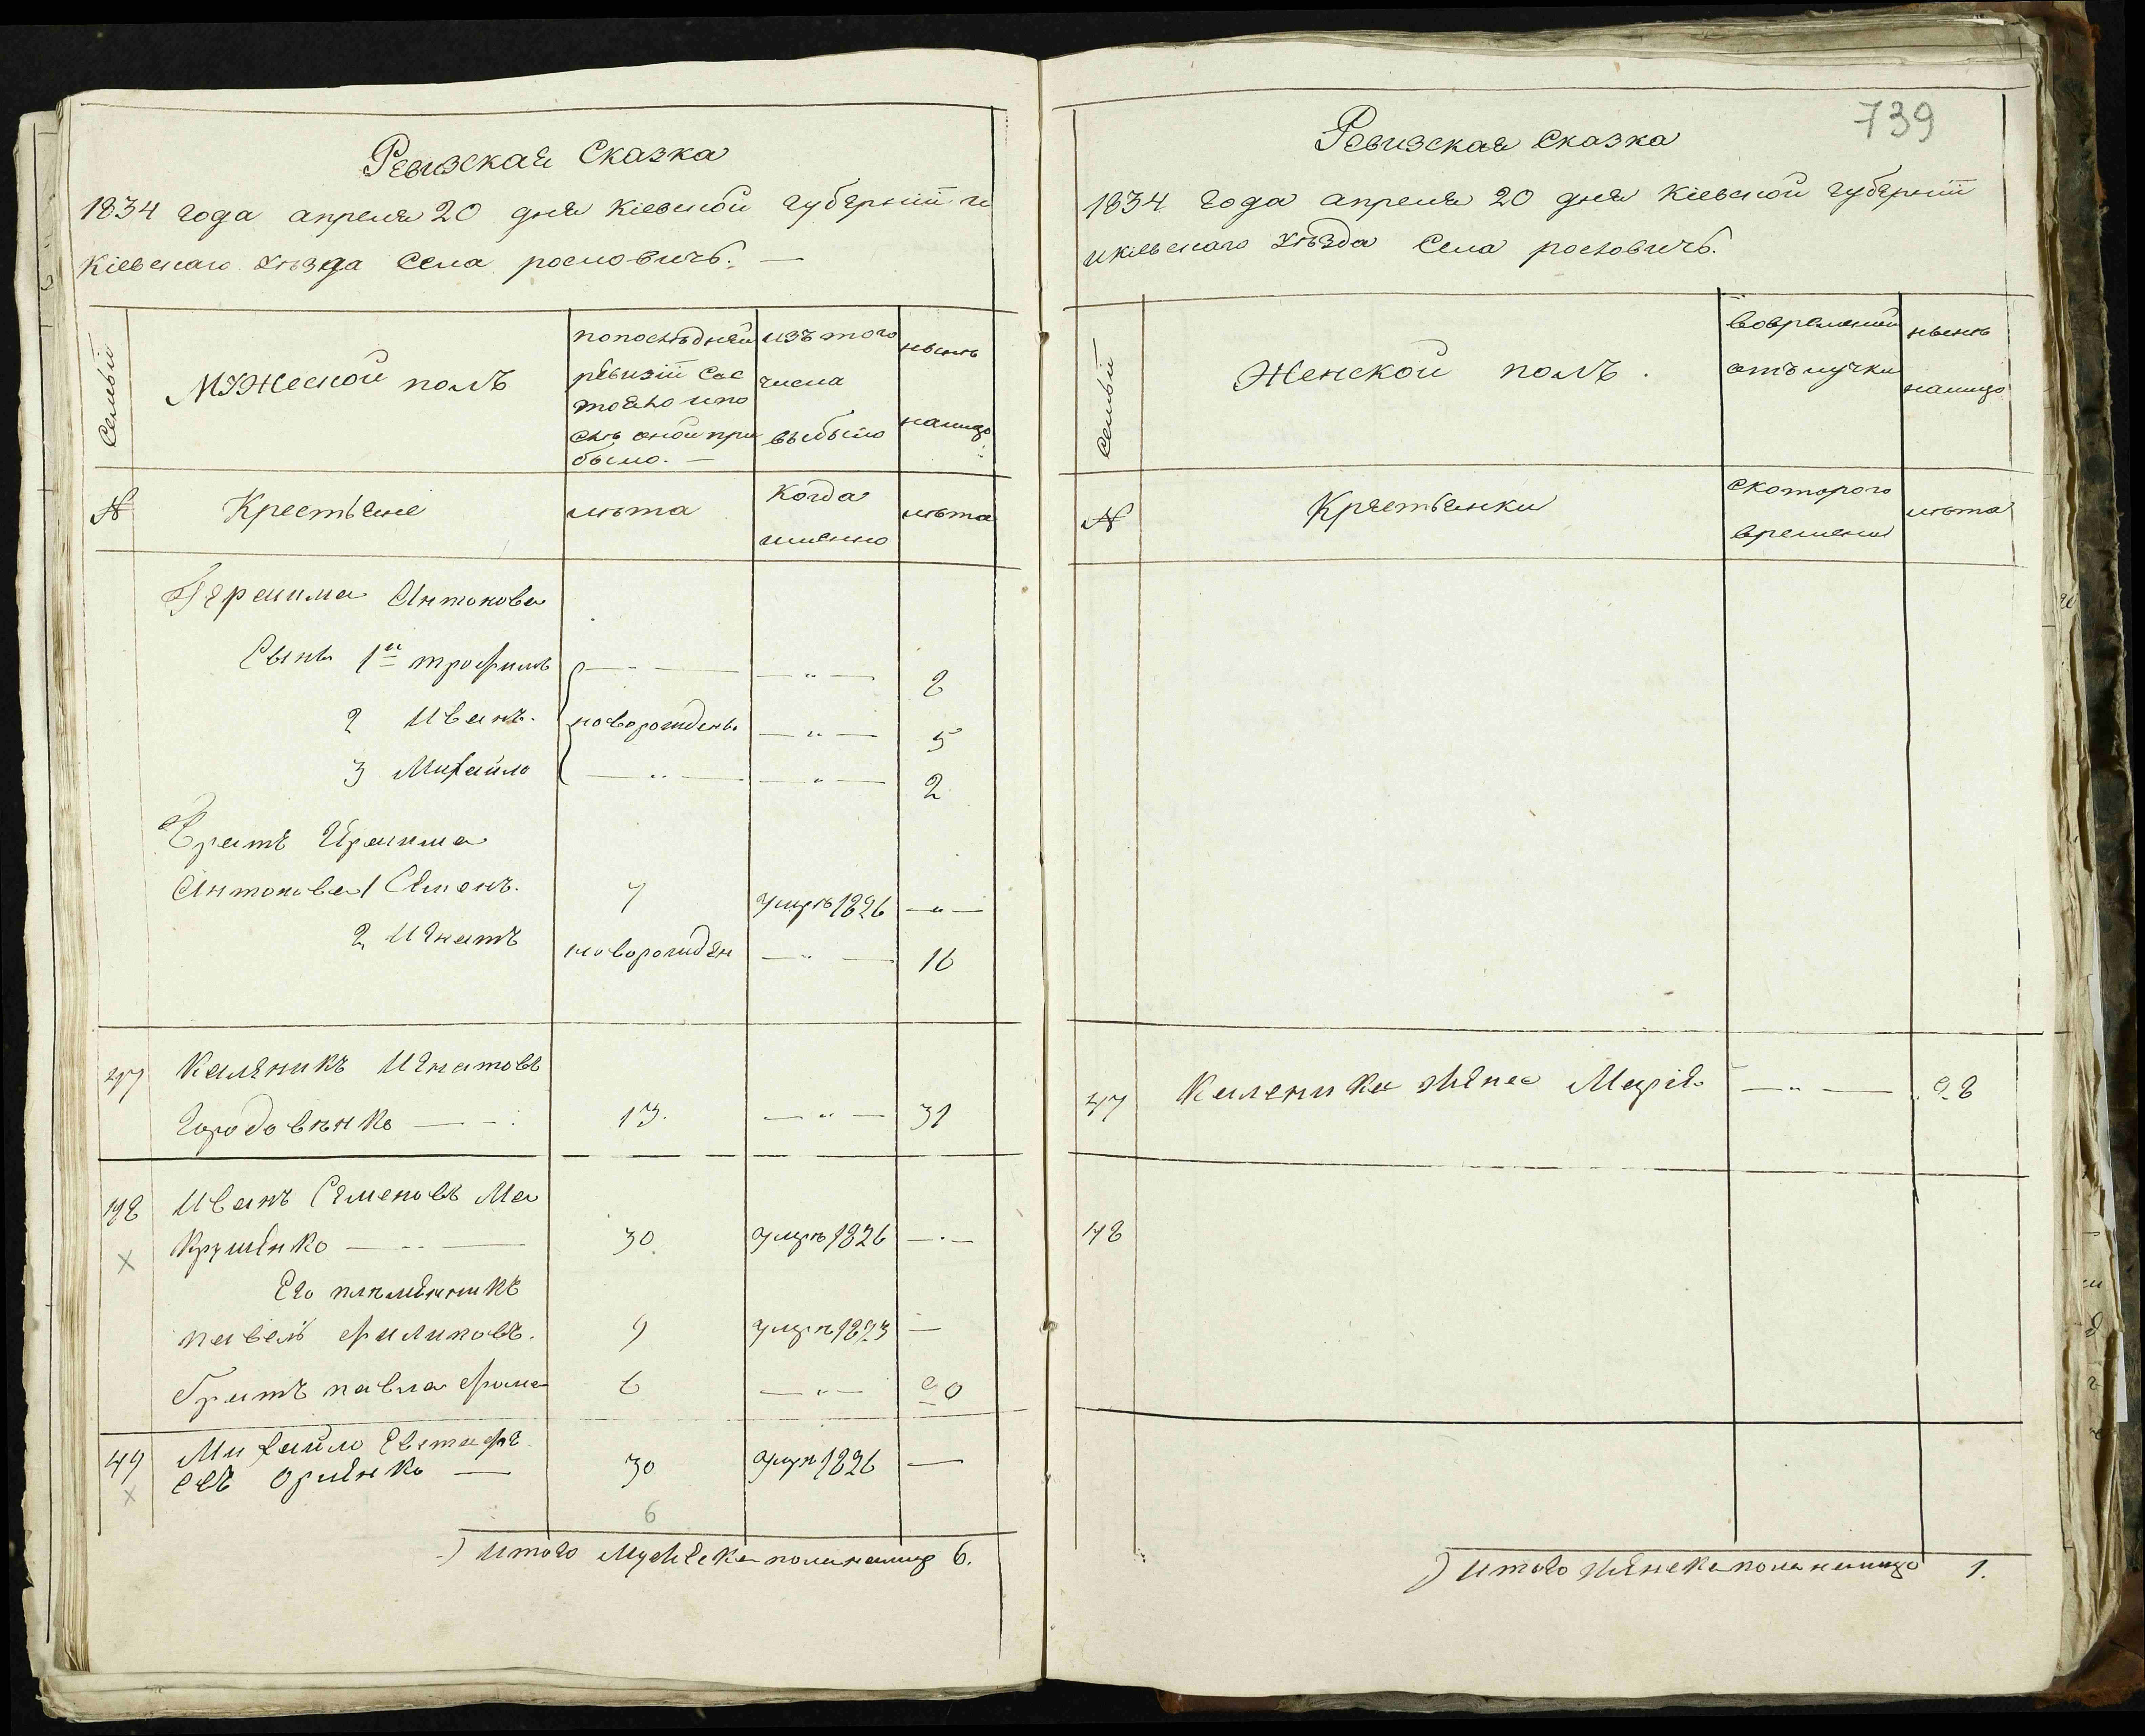 Ревизская Сказка
1834 года апреля 20 дня Кіевской губерніи и
Кіевскаго уѣзда Села рословичъ. —
Семьи
Мужеской полъ
по послѣдней
ревизіи сос
тояло и по
слѣ оной при
было. —
изъ того
числа
выбыло
нынѣ
налицо
№
Крестьяне
лѣта
Когда
именно
лѣта
Герасима Антонова
Сынъ 1й трофимъ — — 8
2 Иванъ. новорожденъ — " — 5
3 Михайло — " — — " — 2
Братъ Ираима
Антонова 1 Семенъ. 7 умре 1826 — " —
2 Игнатъ новорожден — " — 16
47 Каленикъ Игнатовъ
Городовенко — 13. — " — 31
48 Иванъ Семеновъ Ма
x крушенко — " — 30 умре 1826 — " —
Его племенникъ
павелъ филиповъ. 9 умре 1823 —
братъ павла фома 6 — " — 20
49 Михайло Евстафѣ
x евъ Оришенко — 30 умре 1826 —
6
) Итого мужеска пола налицо 6.
739
Ревизская Сказка
1834 года апреля 20 дня Кіевской губерніи
и Кіевскаго уѣзда Села рословичъ.
Семьи
Женской полъ.
во временной
отълучки
нынѣ
налицо
№
Крестьянки
скоторого
времени
лѣта
47 Каленика жена Марія — " — 28
48
) Итого женска пола налицо 1.